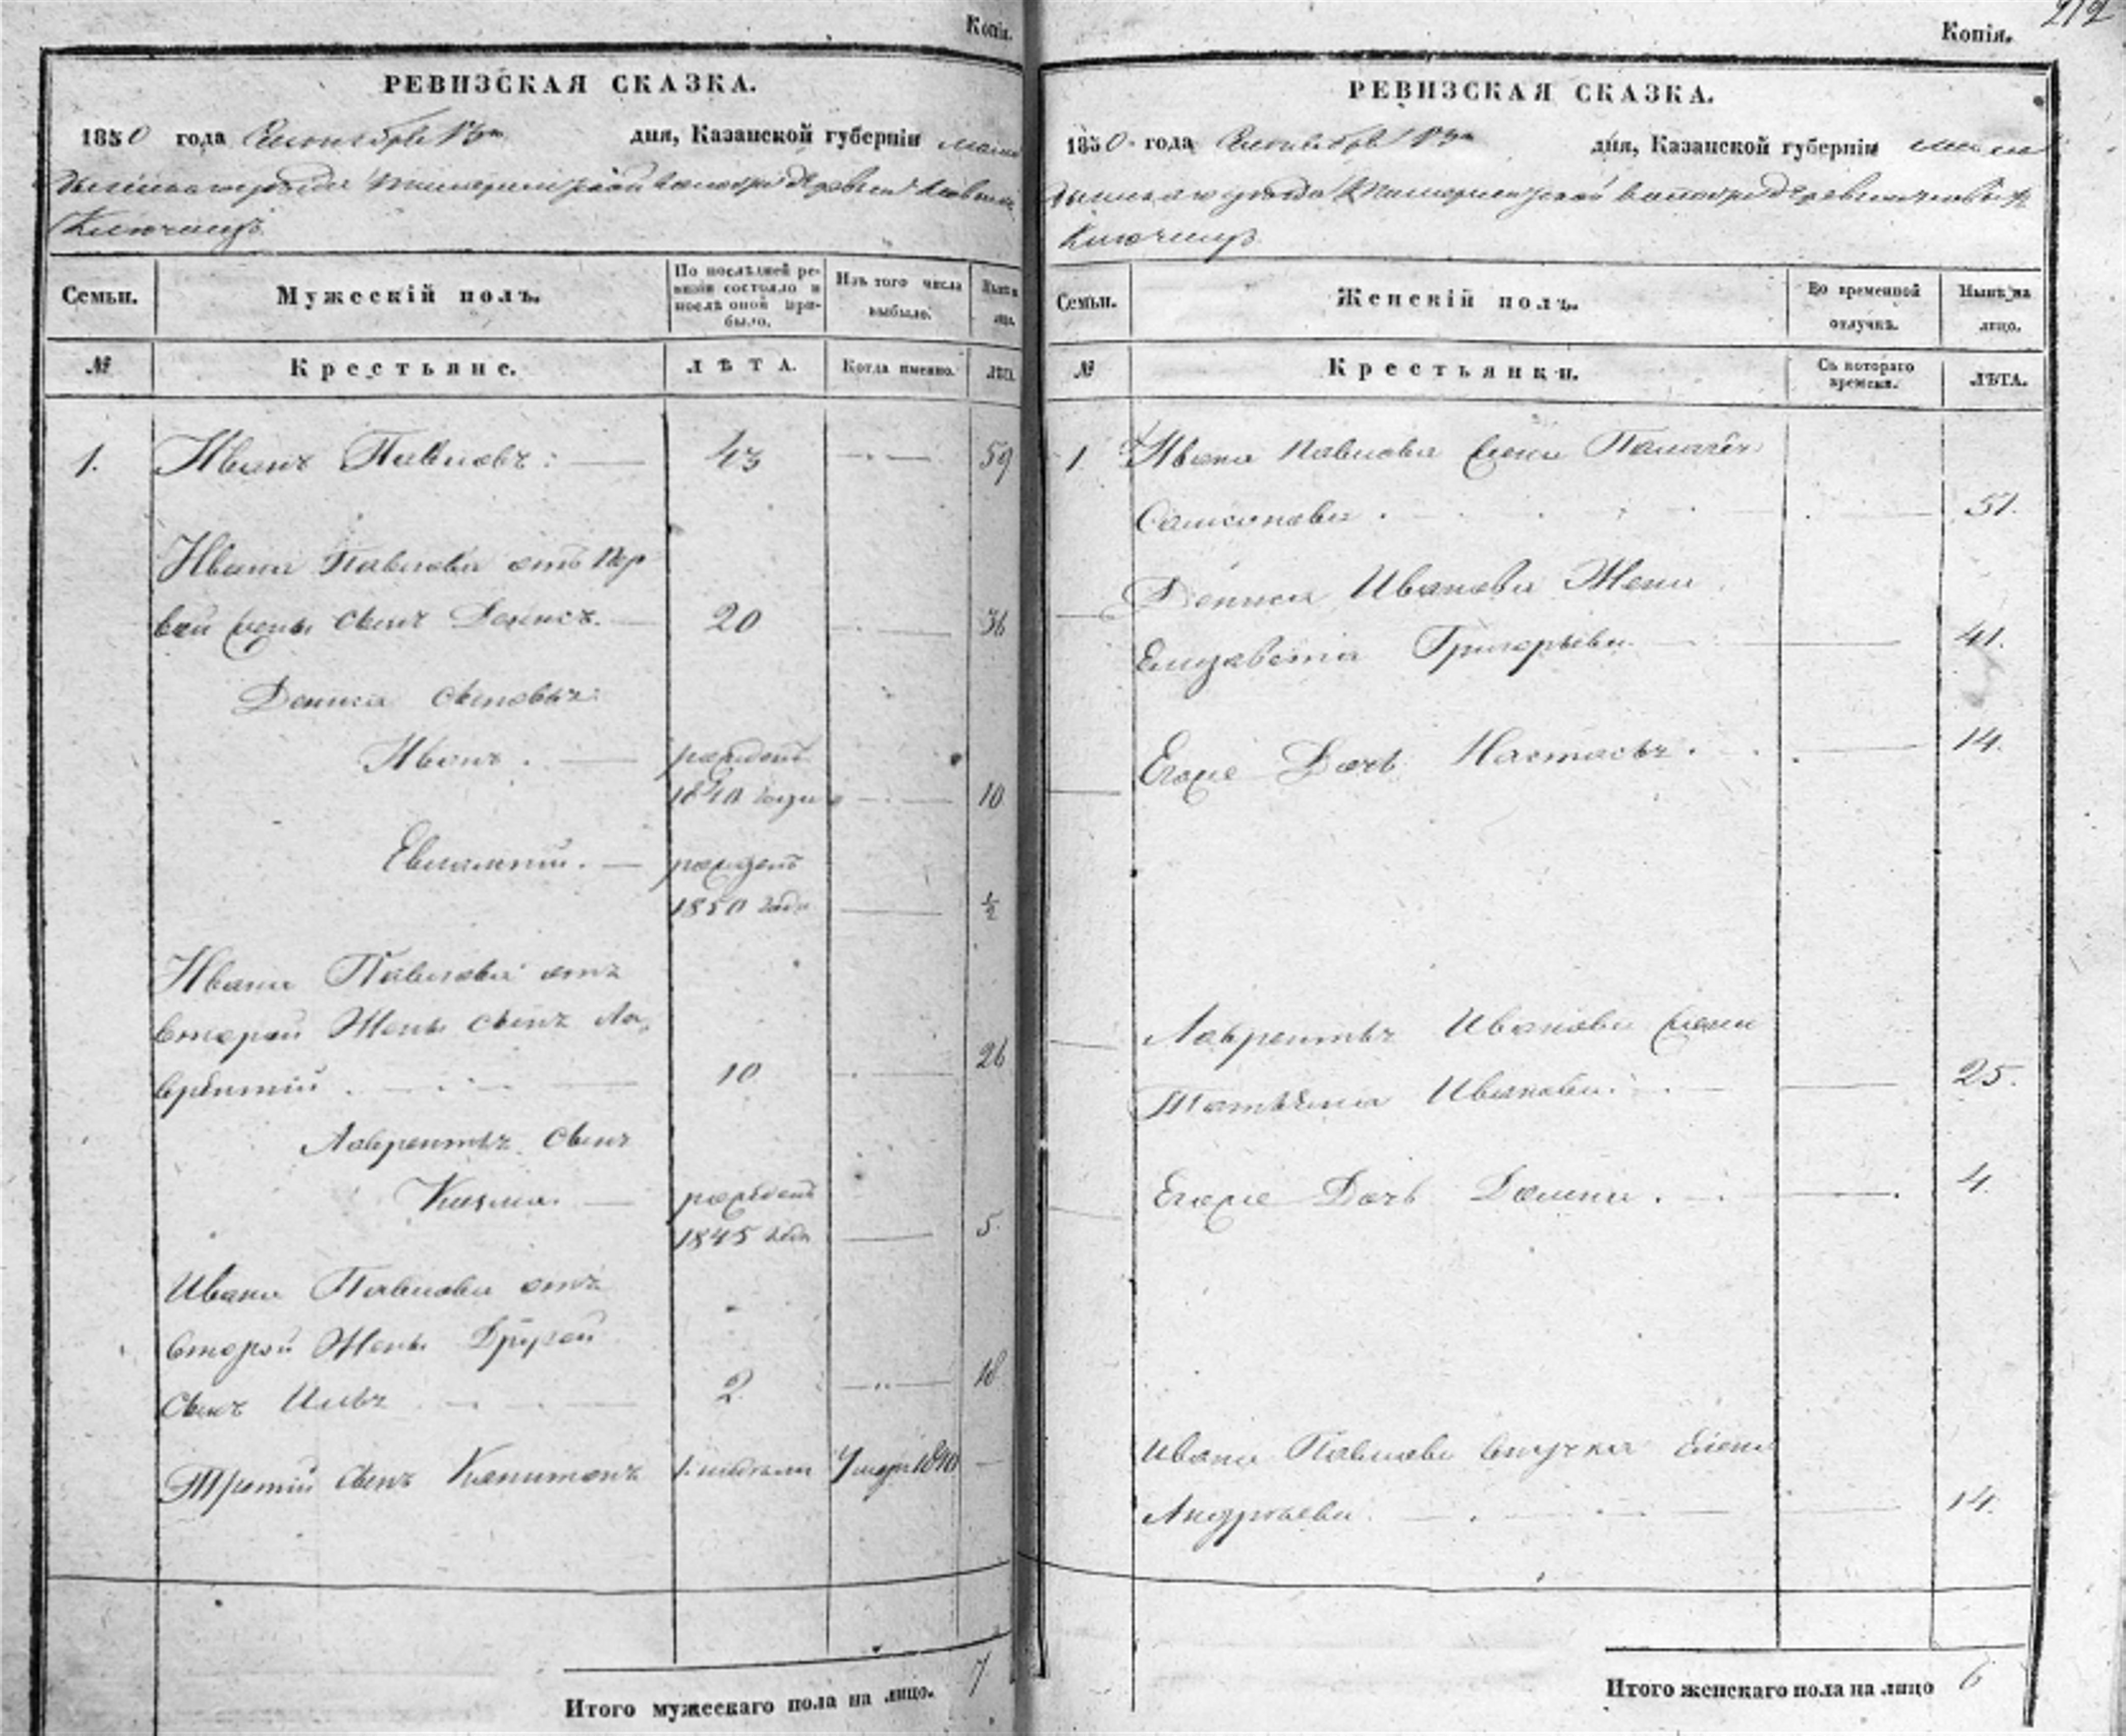 Копія.
РЕВИЗСКАЯ СКАЗКА.
1850 года Сентября 13го дня, Казанской губерніи
уѣзда волости деревни
Ключищъ
Семьи.
Мужескій полъ.
По послѣдней ре-
визіи состояло и
послѣ оной при-
было.
Изъ того числа
выбыло.
Нынѣ
лицо.
№
Крестьяне.
ЛѢТА.
Когда именно.
ЛѢТА.
1. Иванъ Павловъ: 43 59
Ивана Павлова отъ пер
вой жены сынъ Денисъ. 20 36
Дениса сыновья:
Иванъ. рожденъ
1840 года 10
Евлампій. рожденъ
1850 года ½
Ивана Павлова отъ
второй Жены сынъ Ла,
врентій. 10 26
Лаврентья сынъ
Кузма. рожденъ
1845 года 5
Ивана Павлова отъ
второй Жены Другой
сынъ Илья 2 18
Третій сынъ Капитонъ 1. недели Умеръ 1840 —
Итого мужескаго пола на лицо. 7
212
Копія.
РЕВИЗСКАЯ СКАЗКА.
1850 года Сентября 13го дня, Казанской губерніи
уѣзда волости деревни
Ключищъ
Семьи.
Женскій полъ.
Во временной
отлучкѣ.
Нынѣ на
лицо.
№
Крестьянки.
Съ котораго
времени.
ЛѢТА.
1 Ивана Павлова жена Палагея
Самсонова. 51.
Дениса Иванова Жена
Елизавета Григорьева. 41.
Егоже Дочь Настасья. 14.
Лаврентья Иванова жена
Татьяна Иванова. 25.
Егоже Дочь Домна. 4.
Ивана Павлова внучка Елена
Андреева. 14.
Итого женскаго пола на лицо 6